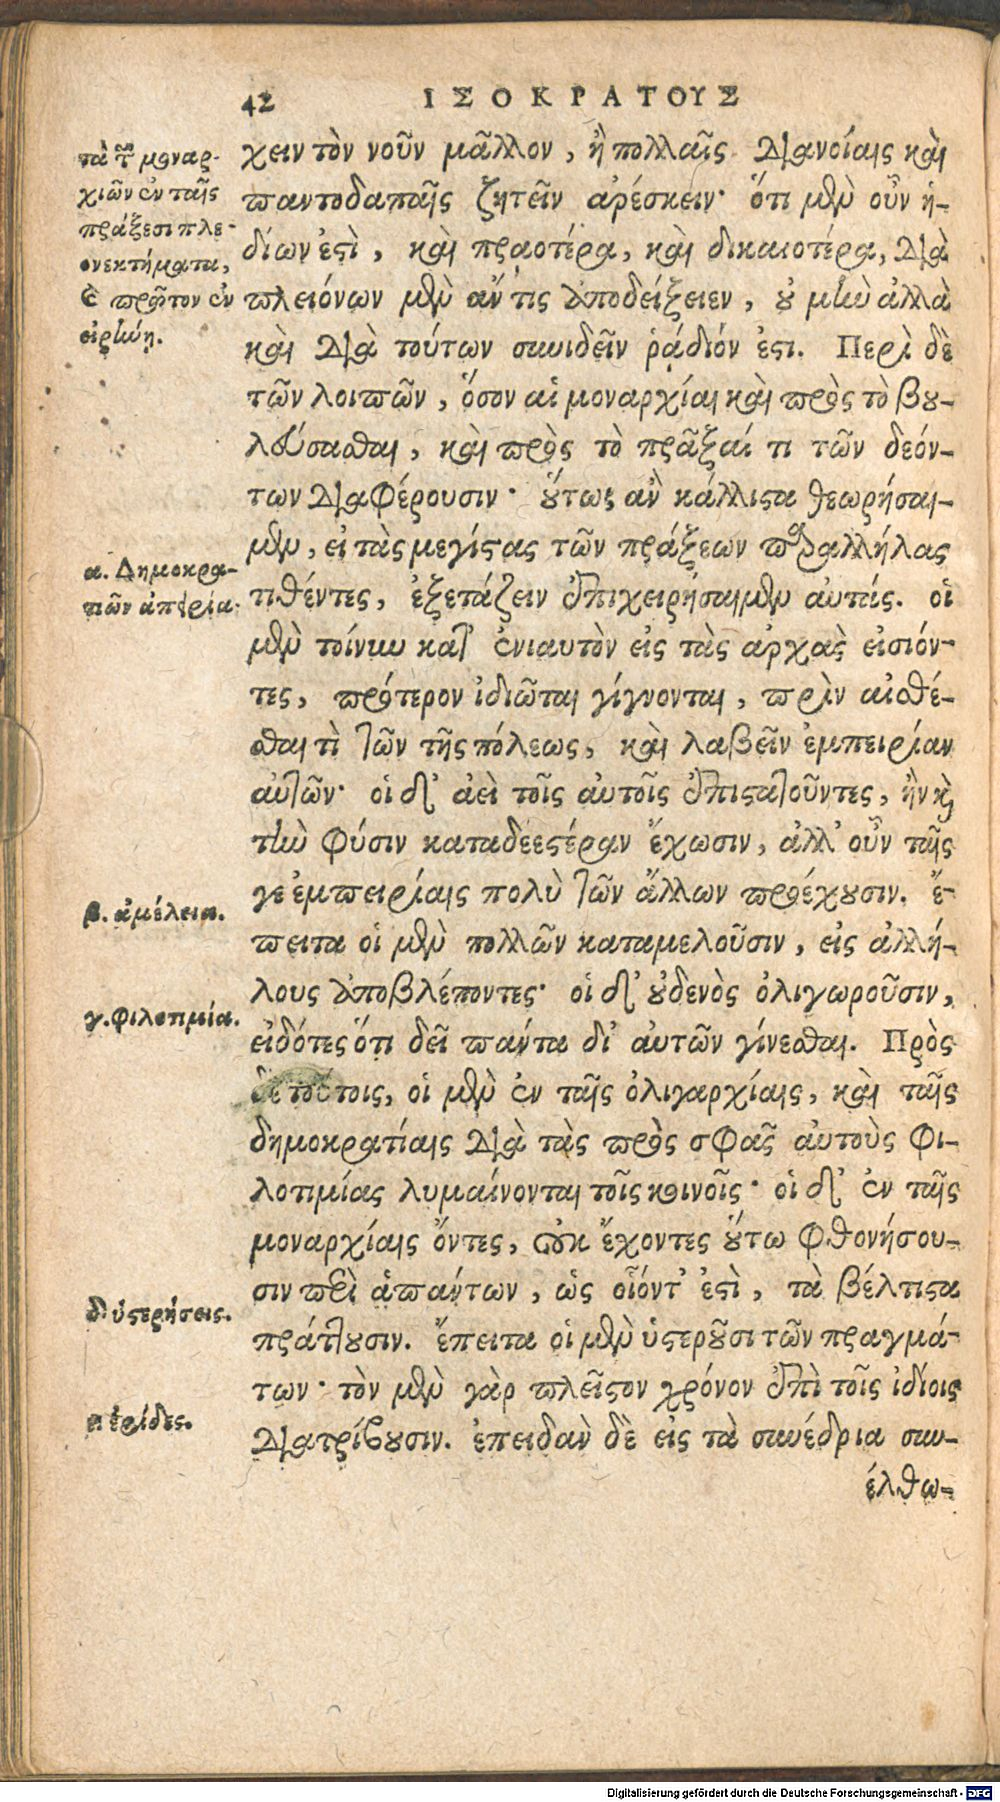 42 ΙΣΟΚΡΑΤΟΥΣ
τὰ τ͂ μοναρ-
χιῶν ἐν ταῖς
πράξεσι πλε-
ονεκτήματα,
ϗ πρῶτον ἐν
εἰρήνῃ.
χειν τὸν νοῦν μᾶλλον, ἢ πολλαῖς διανοίαις καὶ
παντοδαπαῖς ζητεῖν ἀρέσκειν· ὅτι μὲν οὖν ἡ-
δίων ἐστὶ, καὶ πραοτέρα, καὶ δικαιοτέρα, διὰ
πλειόνων μὲν ἄν τις ἀποδείξειεν, οὐ μὴν ἀλλὰ
καὶ διὰ τούτων συνιδεῖν ῥᾴδιόν ἐστι. Περὶ δὲ
τῶν λοιπῶν, ὅσον αἱ μοναρχίαι καὶ πρὸς τὸ βου-
λεύσασθαι, καὶ πρὸς τὸ πρᾶξαί τι τῶν δεόν-
των διαφέρουσιν· οὕτως ἂν κάλλιστα θεωρήσαι-
μεν, εἰ τὰς μεγίστας τῶν πράξεων παραλλήλας
τιθέντες, ἐξετάζειν ἐπιχειρήσαιμεν αὐτάς. οἱ
μὲν τοίνυν κατ’ ἐνιαυτὸν εἰς τὰς ἀρχὰς εἰσιόν-
τες, πρότερον ἰδιῶται γίγνονται, πρὶν αἰσθέ-
σθαι τὶ τῶν τῆς πόλεως, καὶ λαβεῖν ἐμπειρίαν
αὐτῶν· οἱ δ’ ἀεὶ τοῖς αὐτοῖς ἐπιστατοῦντες, ἢν ϗ
τὴν φύσιν καταδεεστέραν ἔχωσιν, ἀλλ’ οὖν ταῖς
γε ἐμπειρίαις πολὺ τῶν ἄλλων προέχουσιν. ἔ-
πειτα οἱ μὲν πολλῶν καταμελοῦσιν, εἰς ἀλλή-
λους ἀποβλέποντες· οἱ δ’ οὐδενὸς ὀλιγωροῦσιν,
εἰδότες ὅτι δεῖ πάντα δι’ αὐτῶν γίνεσθαι. Πρὸς
δὲ τούτοις, οἱ μὲν ἐν ταῖς ὀλιγαρχίαις, καὶ ταῖς
δημοκρατίαις διὰ τὰς πρὸς σφᾶς αὐτοὺς φι-
λοτιμίας λυμαίνονται τοῖς κοινοῖς· οἱ δ’ ἐν ταῖς
μοναρχίαις ὄντες, οὐκ ἔχοντες οὕτω φθονήσου-
σιν περὶ ἁπάντων, ὡς οἷόντ’ ἐστὶ, τὰ βέλτιστα
πράττουσιν. ἔπειτα οἱ μὲν ὑστεροῦσι τῶν πραγμά-
των· τὸν μὲν γὰρ πλεῖστον χρόνον ἐπὶ τοῖς ἰδίοις
διατρίβουσιν. ἐπειδὰν δὲ εἰς τὰ συνέδρια συν-
έλθω-
α. Δημοκρα-
τιῶν ἀπειρία.
β. ἀμέλεια.
γ. φιλοτιμία.
δ. ὑστερήσεις.
ε. ἔριδες.
Digitalisierung gefördert durch die Deutsche Forschungsgemeinschaft - DFG